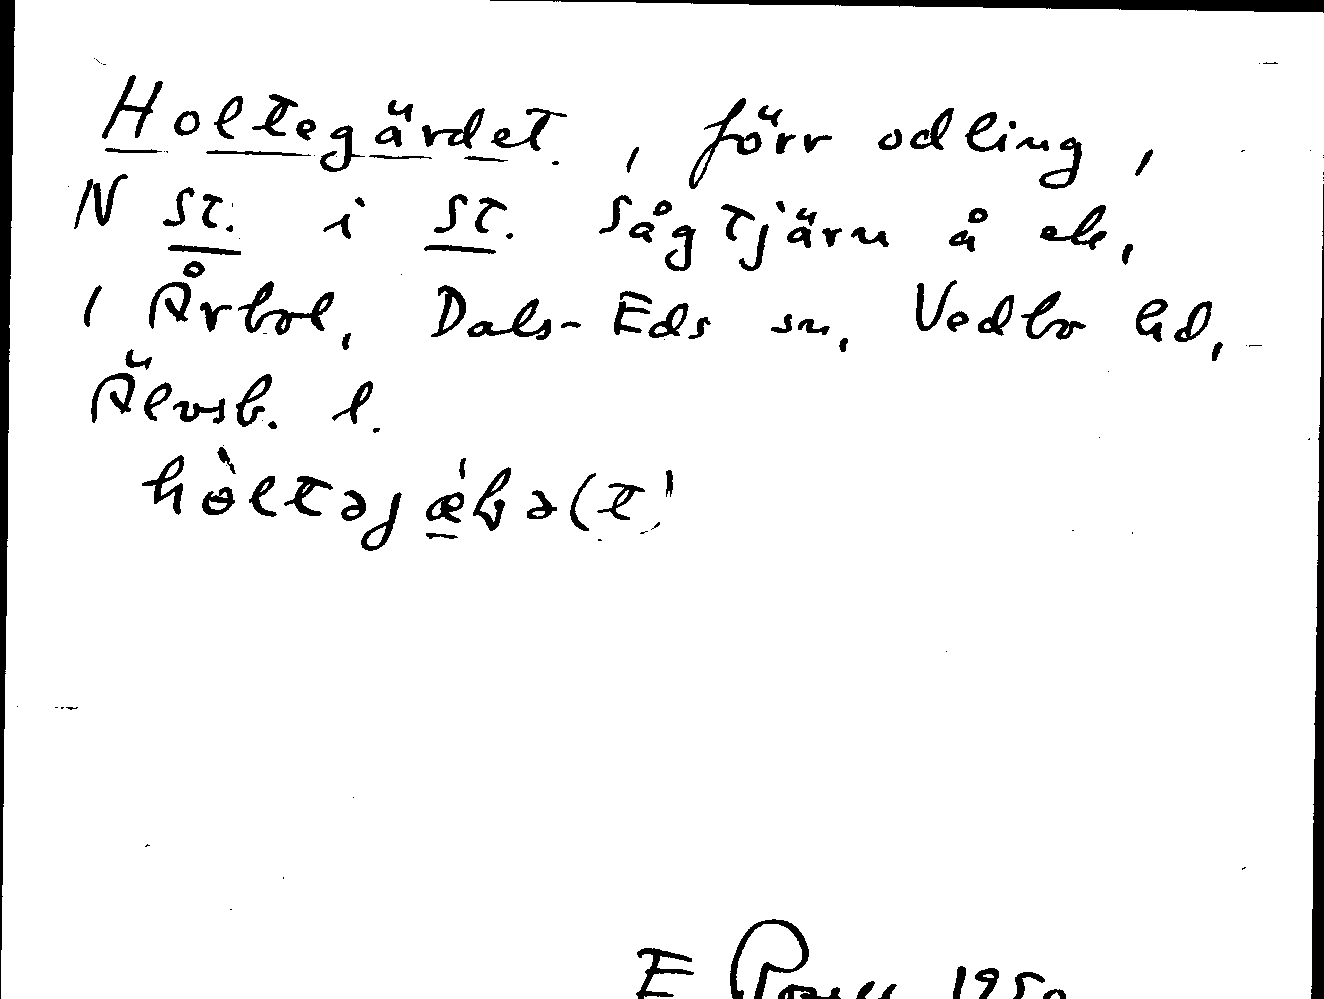 Holtegärdet, förr odling,
N st. i st. Sågtjärn å ek.
i Årbol, Dals-Eds sn, Vedbo hd,
Älvsb. l.
E 1950